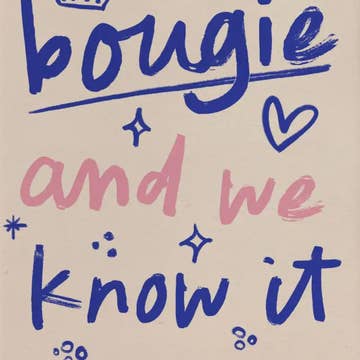 bougie
and we
know it